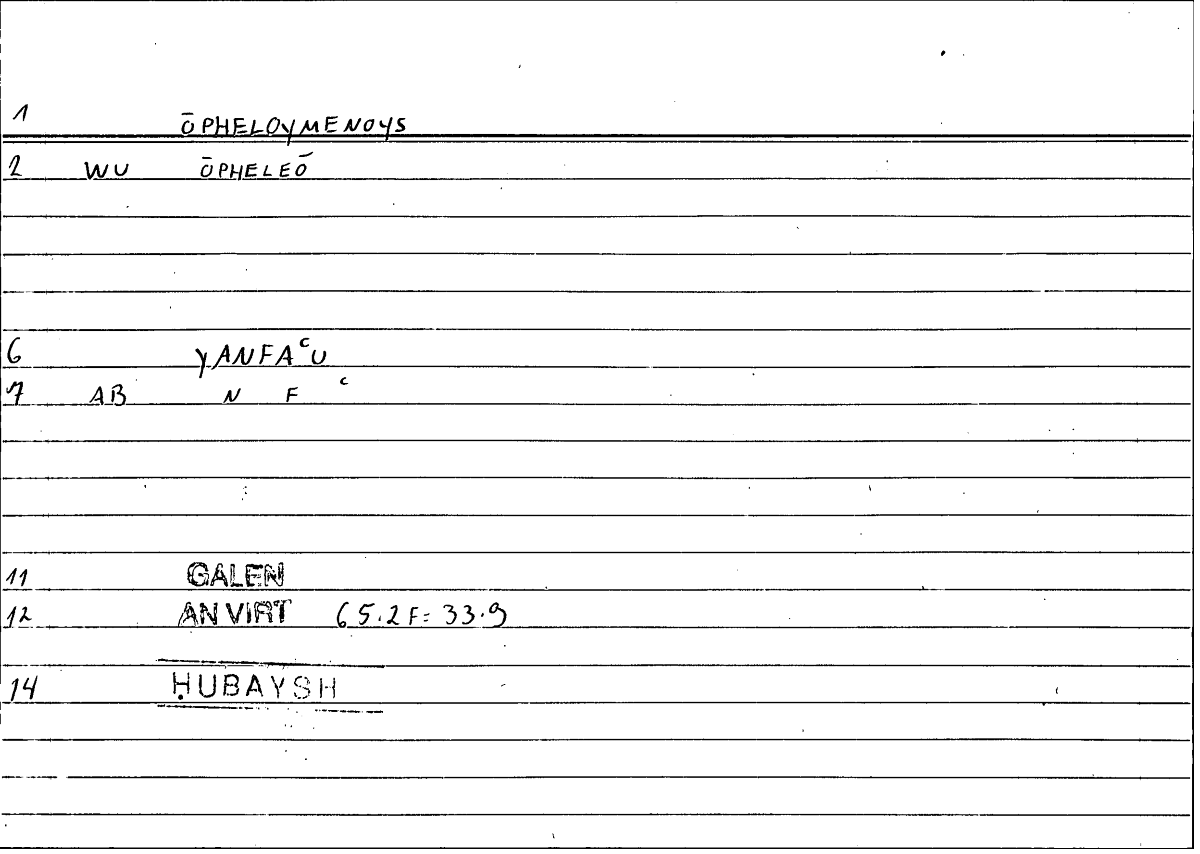 1 ŌPHELOYMENOYS
2 WU ŌPHELEŌ
6 YANFAᶜU
7 AB N F ᶜ
11 GALEN
12 AN VIRT 65.2F= 33.9
14 ḤUBAYSH